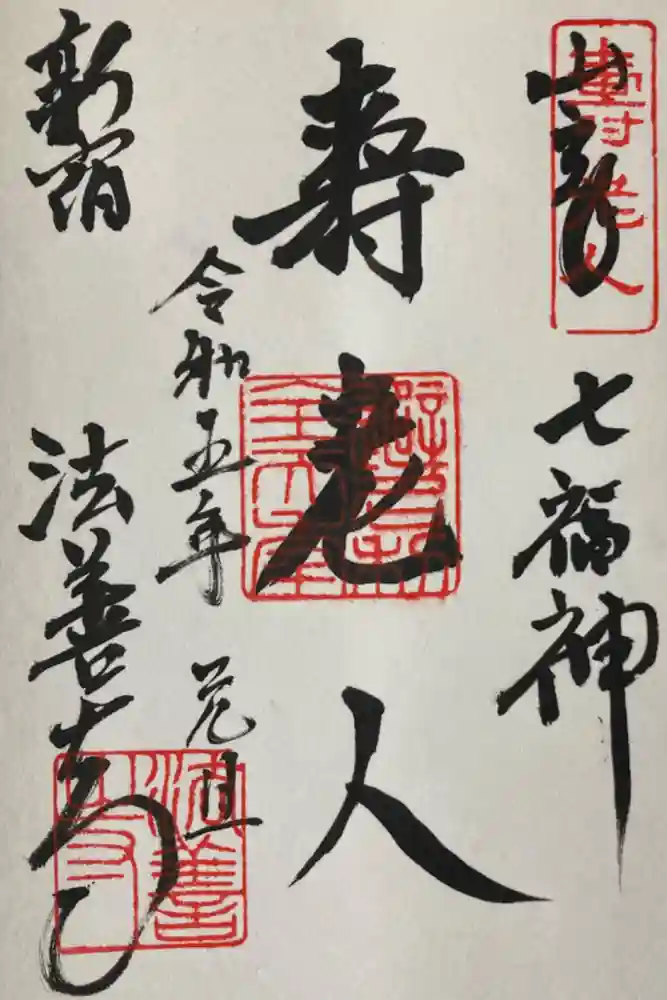 壽老人
七福神
寿老人
令和五年 元旦
新宿
法善寺